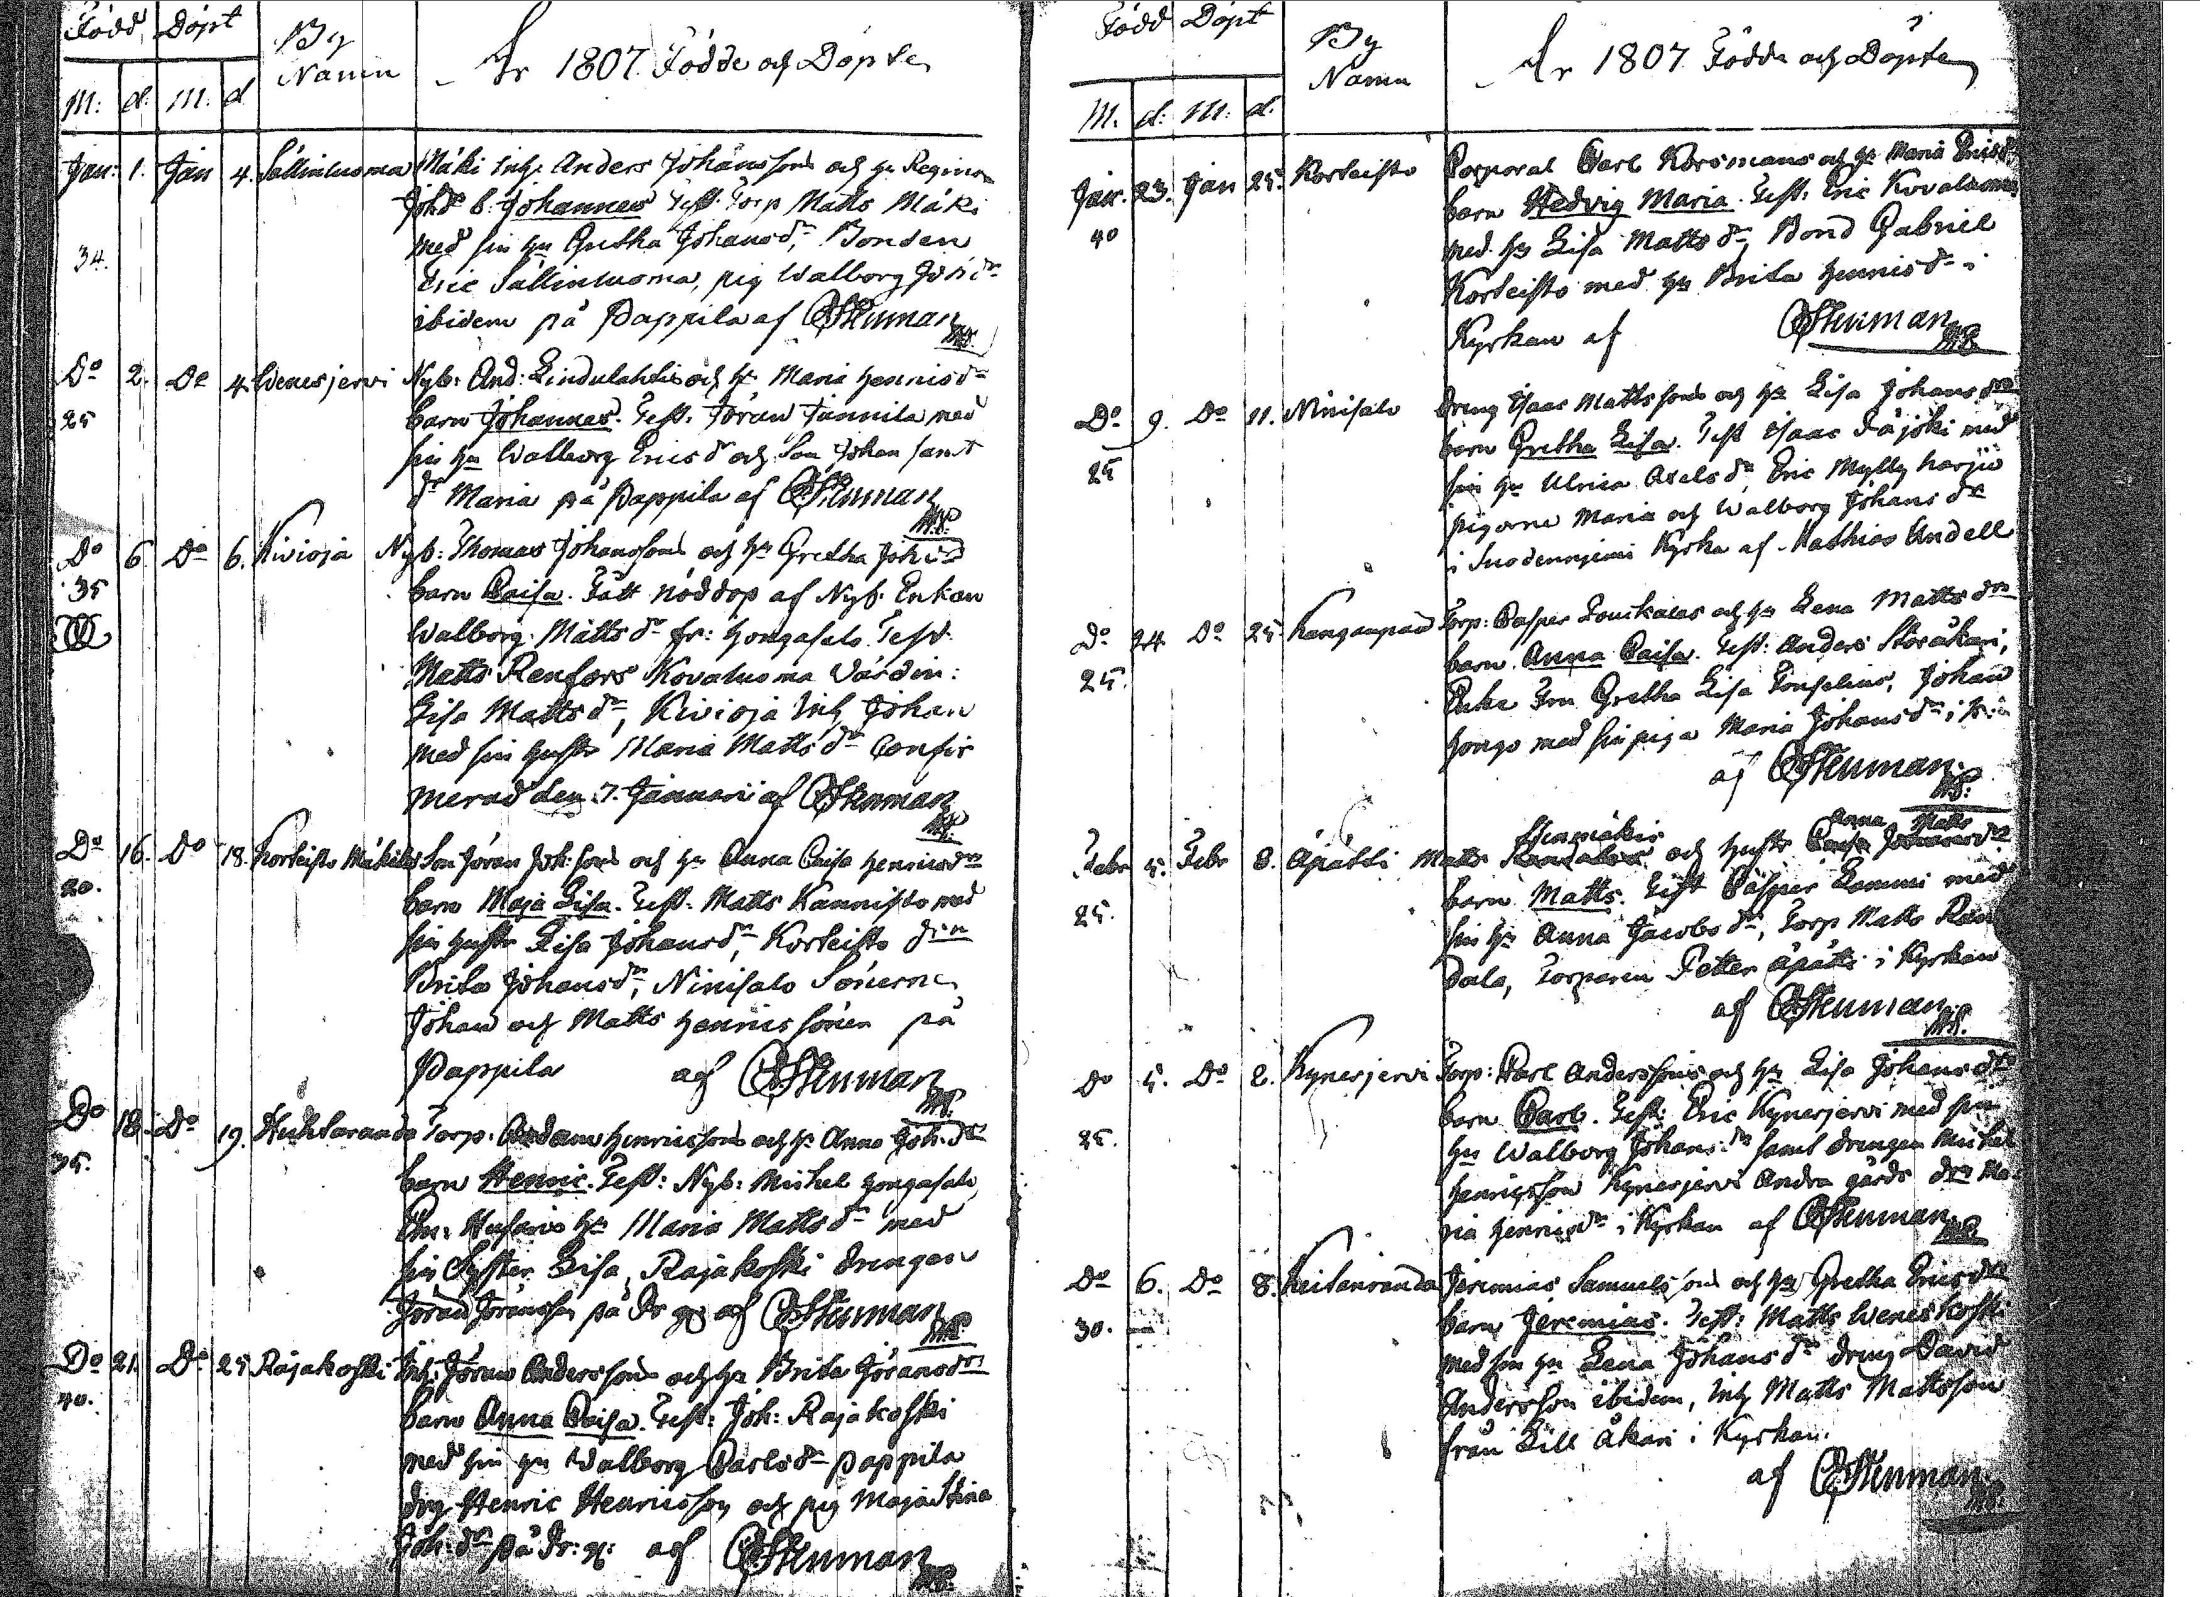 Född Döpt By Namn År 1807 Födde och Döpte
M: d: M: d
Jan: 1. Jan 4. Sällinluoma Mäki Inh: Anders Johanssons och hu Regina
Joh:dr b: Johannes Test. Torp Matts Mäki
34. med sin hu Gretha Johansdr, Bonden
Eric Sällinluoma, pig Walborg
ibidem på Pappila af CStenman
Do 2. Do 4. Wenesjervi Nyb: And: Lindulahtis och hu Maria Henricsdr
25 barn Johannes. Test. Jöran Jannila med
sin hu Walborg Ericsdr och Son Johan samt
dr Maria på Pappila af CStenman
Do 6 Do 6. Kivioja Nyb: Thomas Johanssons och hu Gretha Joh:dr
35 barn Caisa. Fått nöddop af Nyb. Enkan
Walborg Mattsdr fr: Hongasalo. Test.
Matts Renfors Kovaluoma Värdin:
Lisa Mattsdr, Kivioja Inh Johan
med sin hustr Maria Mattsdr Confir
merad den 7. Januari af CStenman
Do 16. Do 18. Korteisto Mäkiläs Son Jöran Joh:sons och hu Anna Caisa Henricsdr
20. barn Maja Lisa. Test. Matts Kannisto med
sin hustr Lisa Johansdr, Korteisto drn
Brita Johansdr, Ninisalo Sönerne
Johan och Matts Henricssöner på
Pappila af CStenman
Do 18. Do 19. Huhtaranda Torp. Adam Henricssons och hu Anna Joh:dr
35. barn Henric. Test: Nyb: Michel Hongasalo
Hu Maria Mattsdr med
sin Syster Lisa, Rajakoski drengen
Jöran Jöransson på Pr af CStenman
Do 21. Do 25 Rajakoski Inh: Jöran Anderssons och hu Brita Jöransdr
40. barn Anna Caisa. Test: Joh: Rajakoski
med sin hu Walborg Carlsdr Pappila
drg Henric Henricsson och pig Maja Stina
Joh:dr på Pr: af CStenman
Född Döpt By Namn År 1807 Födde och Döpte
M. d: M: d:
Jan. 23. Jan 25. Korteisto Corporal Carl Korsmans och hu Maria Ericsdr
40 barn Hedvig Maria. Test: Eric Kovaluoma
med hu Lisa Mattsdr, Bond Gabriel
Korteisto med hu Brita Henricsdr i
Kyrkan af CStenman
Do 9. Do 11. Ninisalo Dreng Isaac Mattssons och hu Lisa Johansdr
25 barn Gretha Lisa. Test Isaac Säjöki med
sin hu Ulrica Axelsdr Eric Myllyharju
pigorne Maria och Walborg Johansdr
i Suodenniemi Kyrka af Mathias Andell
Do 24 Do 25 Kanganpää Torp: Casper Tonikalas och hu Lena Mattsdr
25. barn Anna Caisa. Test: Anders Storäkari,
Enke Fru Gretha Lisa Forselius, Johan
Hongo med sin piga Maria Johansdr i
af CStenman
Febr 5. Febr 8. Äpätti Matts och hustr Anna Mattsdr
25. barn Matts. Test Casper Lammi med
sin hu Anna Jacobsdr, Torp Matts Ran
dala, Torparen Petter Äpätti i Kyrkan
af CStenman
Do 5. Do 8. Kynesjervi Torp: Carl Anderssons och hu Lisa Johansdr
25. barn Carl. Test: Eric Kynesjervi med sin
hu Walborg Johans:dr samt drengen Michel
Henricsson Kynesjervi Andra gårds drn Ma
ria Henricsdr i Kyrkan af CStenman
Do 6. Do 8. Keitanranda Jeremias Samuelssons och hu Gretha Ericsdr
30. barn Jeremias. Test: Matts Weneskoski
med sin hu Lena Johansdr dreng David
Andersson ibidem, Inh Matts Mattsson
från Lill Äkari i Kyrkan.
af CStenman